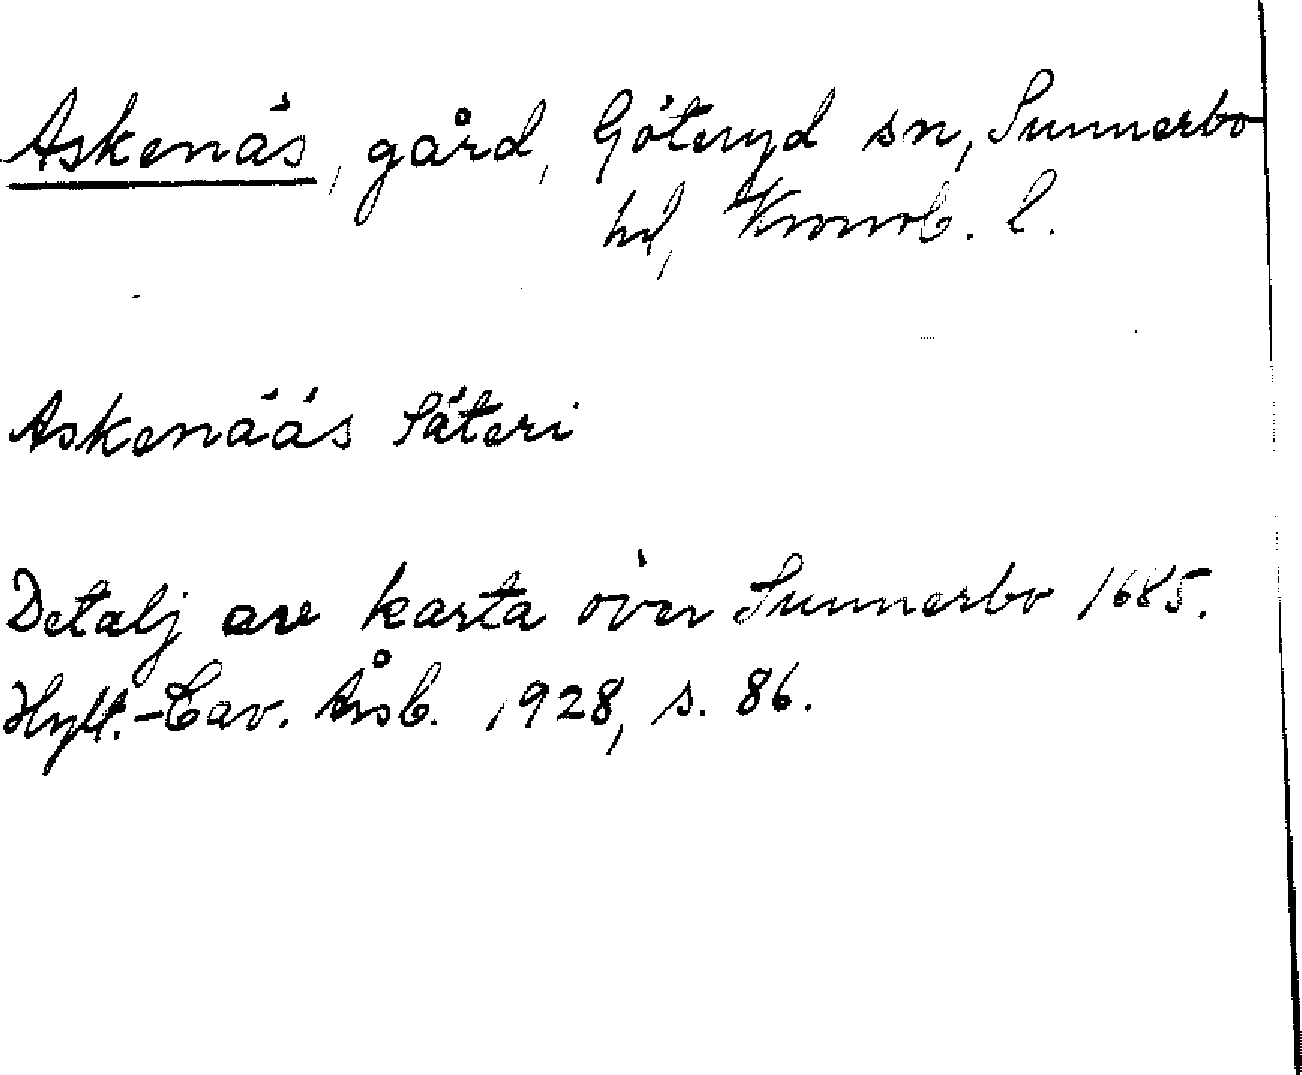 Askenäs, gård, Göteryd sn, Sunnerbo
hd, Kronob. l.
Askenääs Säteri
Detalj av karta över Sunnerbo 1685.
Hylt.-Cav. Årsb. 1928, s. 86.